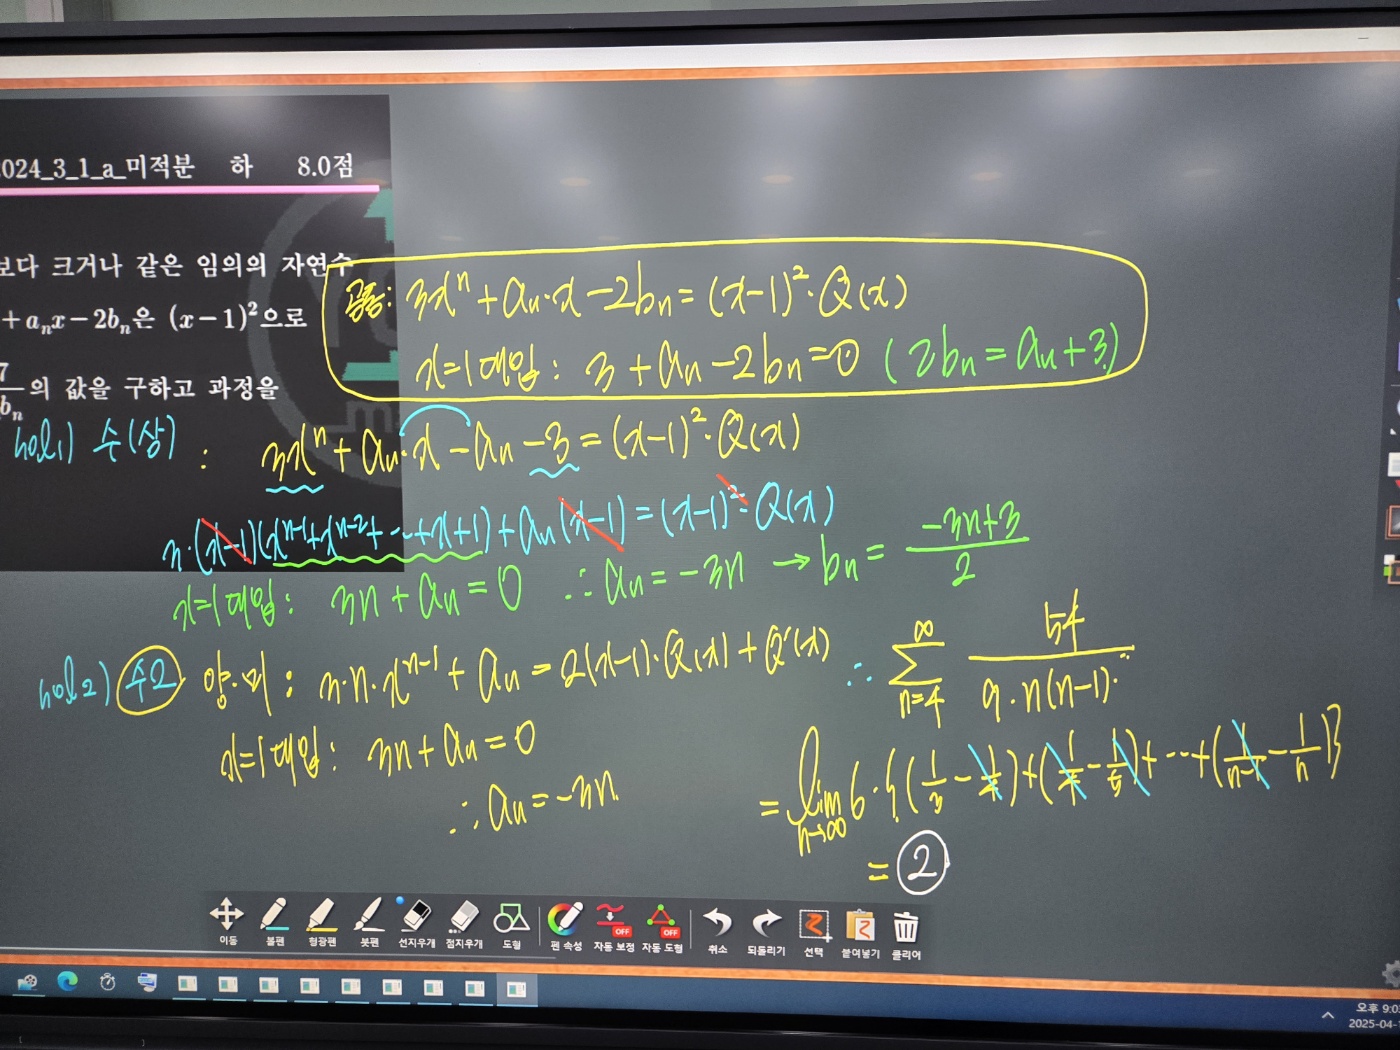 024_3_1_a_미적분 하 8.0점
보다 크거나 같은 임의의 자연수
+a_n x-2b_n은 (x-1)^2으로
7/b_n의 값을 구하고 과정을
공통: 3x^n + a_n·x - 2b_n = (x-1)^2·Q(x)
x=1 대입: 3 + a_n - 2b_n = 0 (2b_n = a_n + 3)
sol1) 수(상) : 3x^n + a_n·x - a_n - 3 = (x-1)^2·Q(x)
3·(x-1)(x^{n-1}+x^{n-2}+···+x+1) + a_n(x-1) = (x-1)^2·Q(x)
x=1 대입: 3n + a_n = 0 ∴ a_n = -3n → b_n = (-3n+3)/2
sol2) 수2 양·미: 3·n·x^{n-1} + a_n = 2(x-1)·Q(x) + Q'(x)
x=1 대입: 3n + a_n = 0
∴ a_n = -3n
∴ ∑_{n=4}^{∞} 54/(9·n(n-1))
= lim_{n→∞} 6·{(1/3 - 1/4) + (1/4 - 1/5) + ··· + (1/(n-1) - 1/n)}
= 2
이동 볼펜 형광펜 붓펜 선지우개 점지우개 도형 펜 속성 OFF 자동 보정 OFF 자동 도형 취소 되돌리기 선택 붙여넣기 클리어
오후 9:0
2025-04-